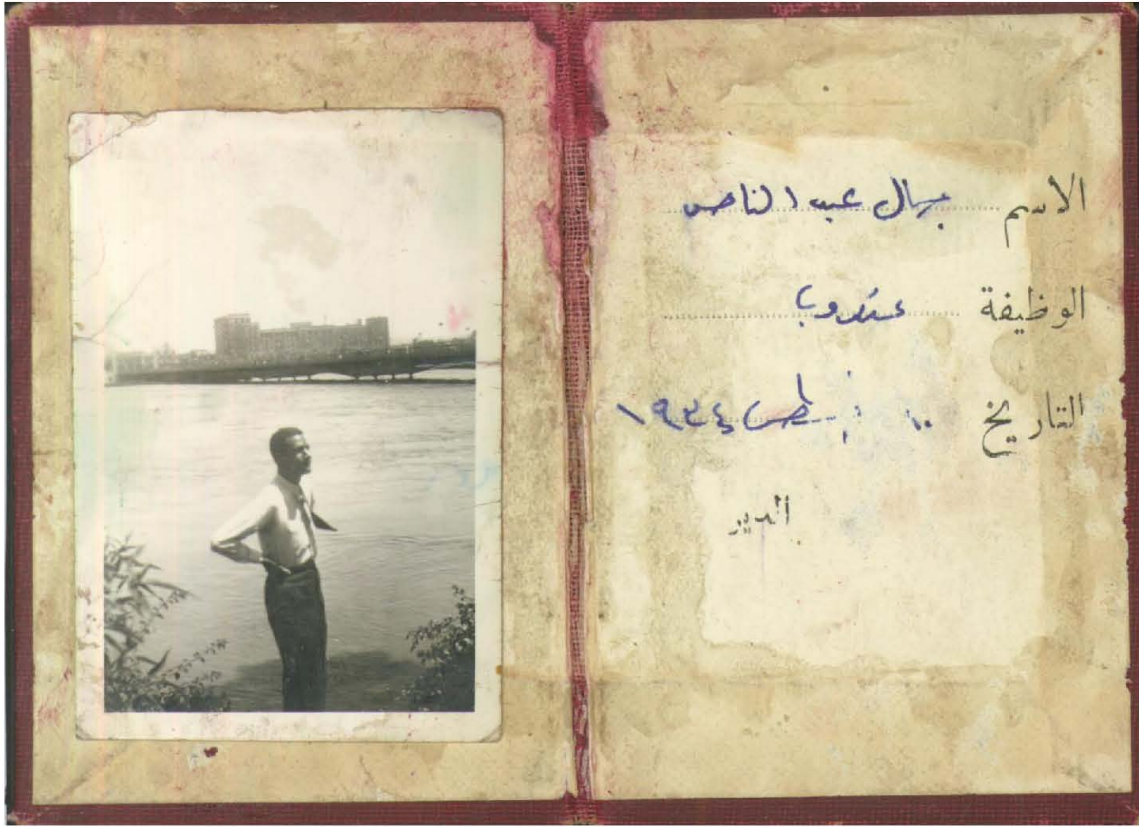 الاسم جمال عبد الناصر
الوظيفة مندوب
التاريخ ١٠ أغسطس ١٩٣٤
المدير